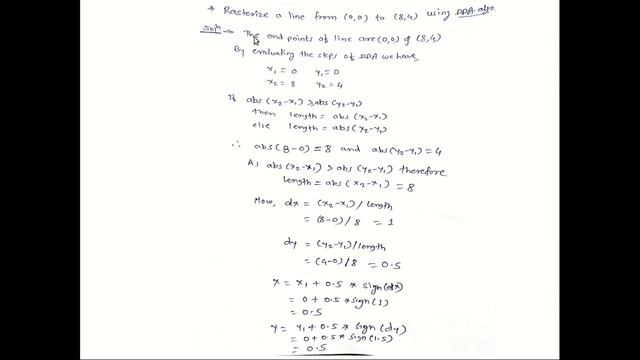 * Rasterize a line from (0,0) to (8,4) using DDA algo.
Solⁿ → The end points of line are (0,0) & (8,4)
By evaluating the steps of DDA we have,
x₁ = 0 y₁ = 0
x₂ = 8 y₂ = 4
If abs (x₂-x₁) ≥ abs (y₂-y₁)
then length = abs (x₂-x₁)
else length = abs (y₂-y₁)
∴ abs (8-0) = 8 and abs (y₂-y₁) = 4
As abs (x₂-x₁) > abs (y₂-y₁) therefore
length = abs (x₂-x₁) = 8
Now, dx = (x₂-x₁) / length
= (8-0) / 8 = 1
dy = (y₂-y₁) / length
= (4-0) / 8 = 0.5
x = x₁ + 0.5 * sign (dx)
= 0 + 0.5 * sign (1)
= 0.5
y = y₁ + 0.5 * sign (dy)
= 0 + 0.5 * sign (1.5)
= 0.5